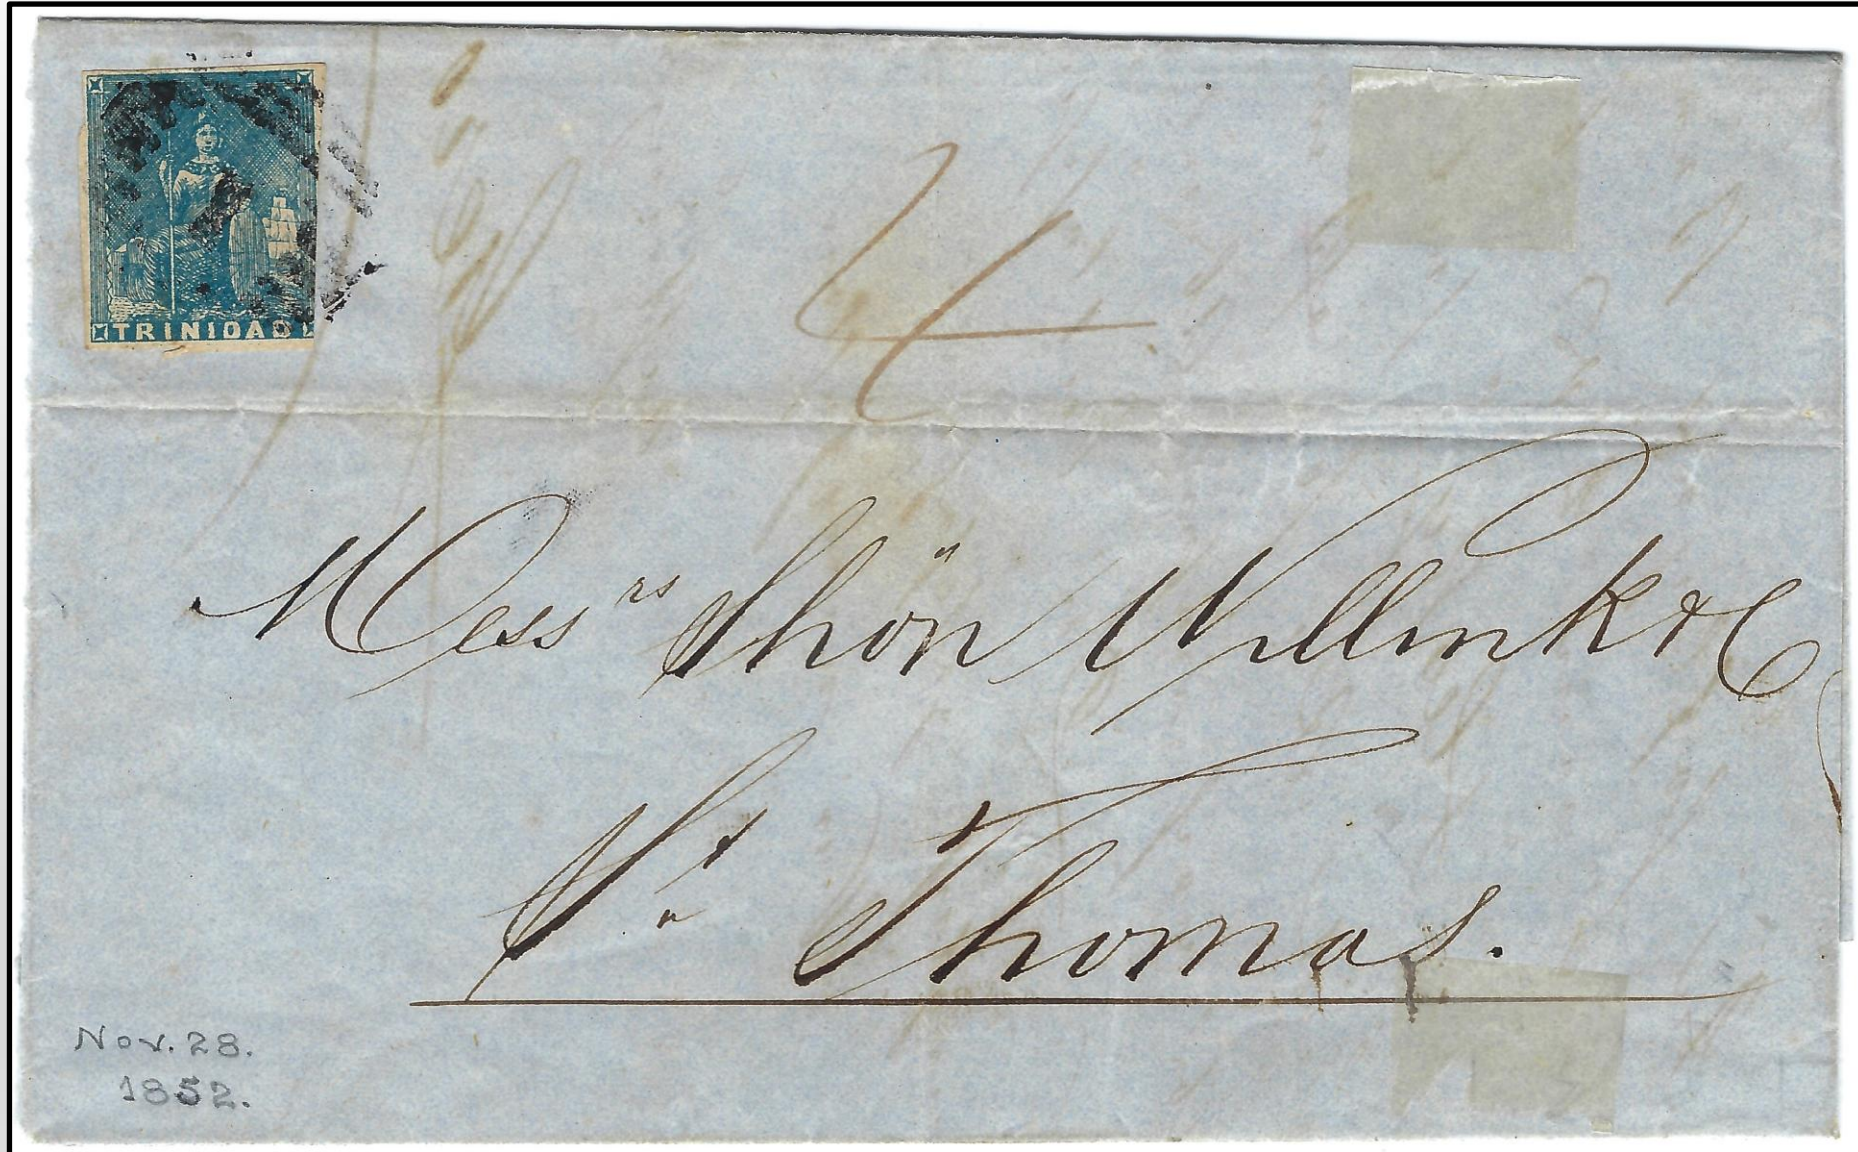 TRINIDAD
4
Mess rs Schön Willink & C
St Thomas.
Nov. 28.
1852.